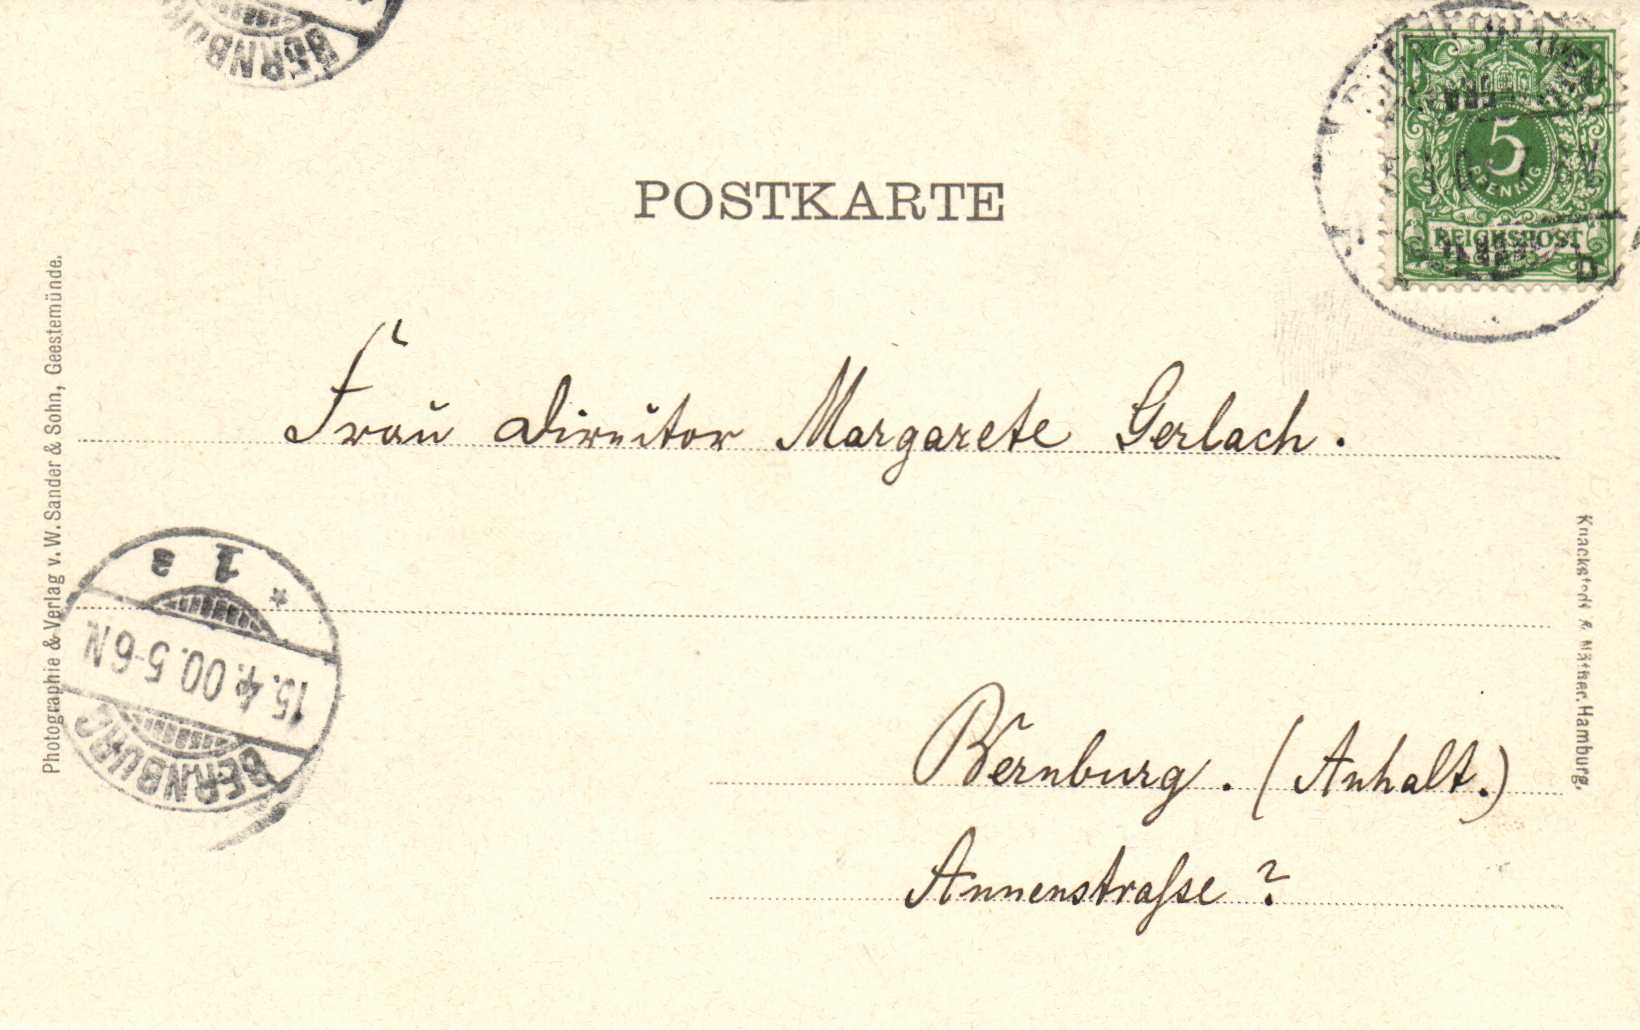 BERNBURG
POSTKARTE
5
PFENNIG
REICHSPOST
D
Photographie & Verlag v. W. Sander & Sohn, Geestemünde.
Frau Director Margarete Gerlach.
* 1 a
15. 4. 00. 5-6 N
BERNBURG
Bernburg. (Anhalt.)
Annenstraſse ?
Knackstedt & Näther, Hamburg.